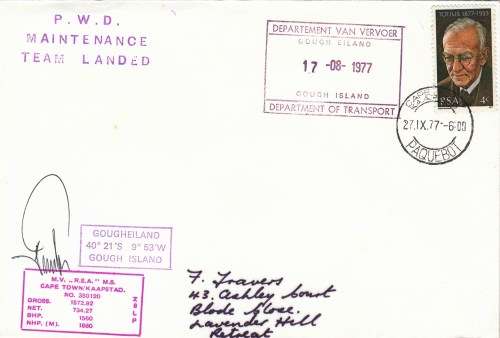 P. W. D.
MAINTENANCE
TEAM LANDED
DEPARTEMENT VAN VERVOER
GOUGH EILAND
17 -08- 1977
GOUGH ISLAND
DEPARTMENT OF TRANSPORT
TOTIUS 1877-1953
RSA 4c
27.IX.77-6 00
PAQUEBOT
GOUGHEILAND
40° 21'S 9° 53'W
GOUGH ISLAND
M.V. „R.S.A." M.S.
CAPE TOWN/KAAPSTAD.
NO. 350190
GROSS. 1572.92
NET. 734.27
BHP. 1560
NHP. (M). 1680
ZSLP
F. Travers
43. Ashley Court
Blode Close.
Lavender Hill
Retreat